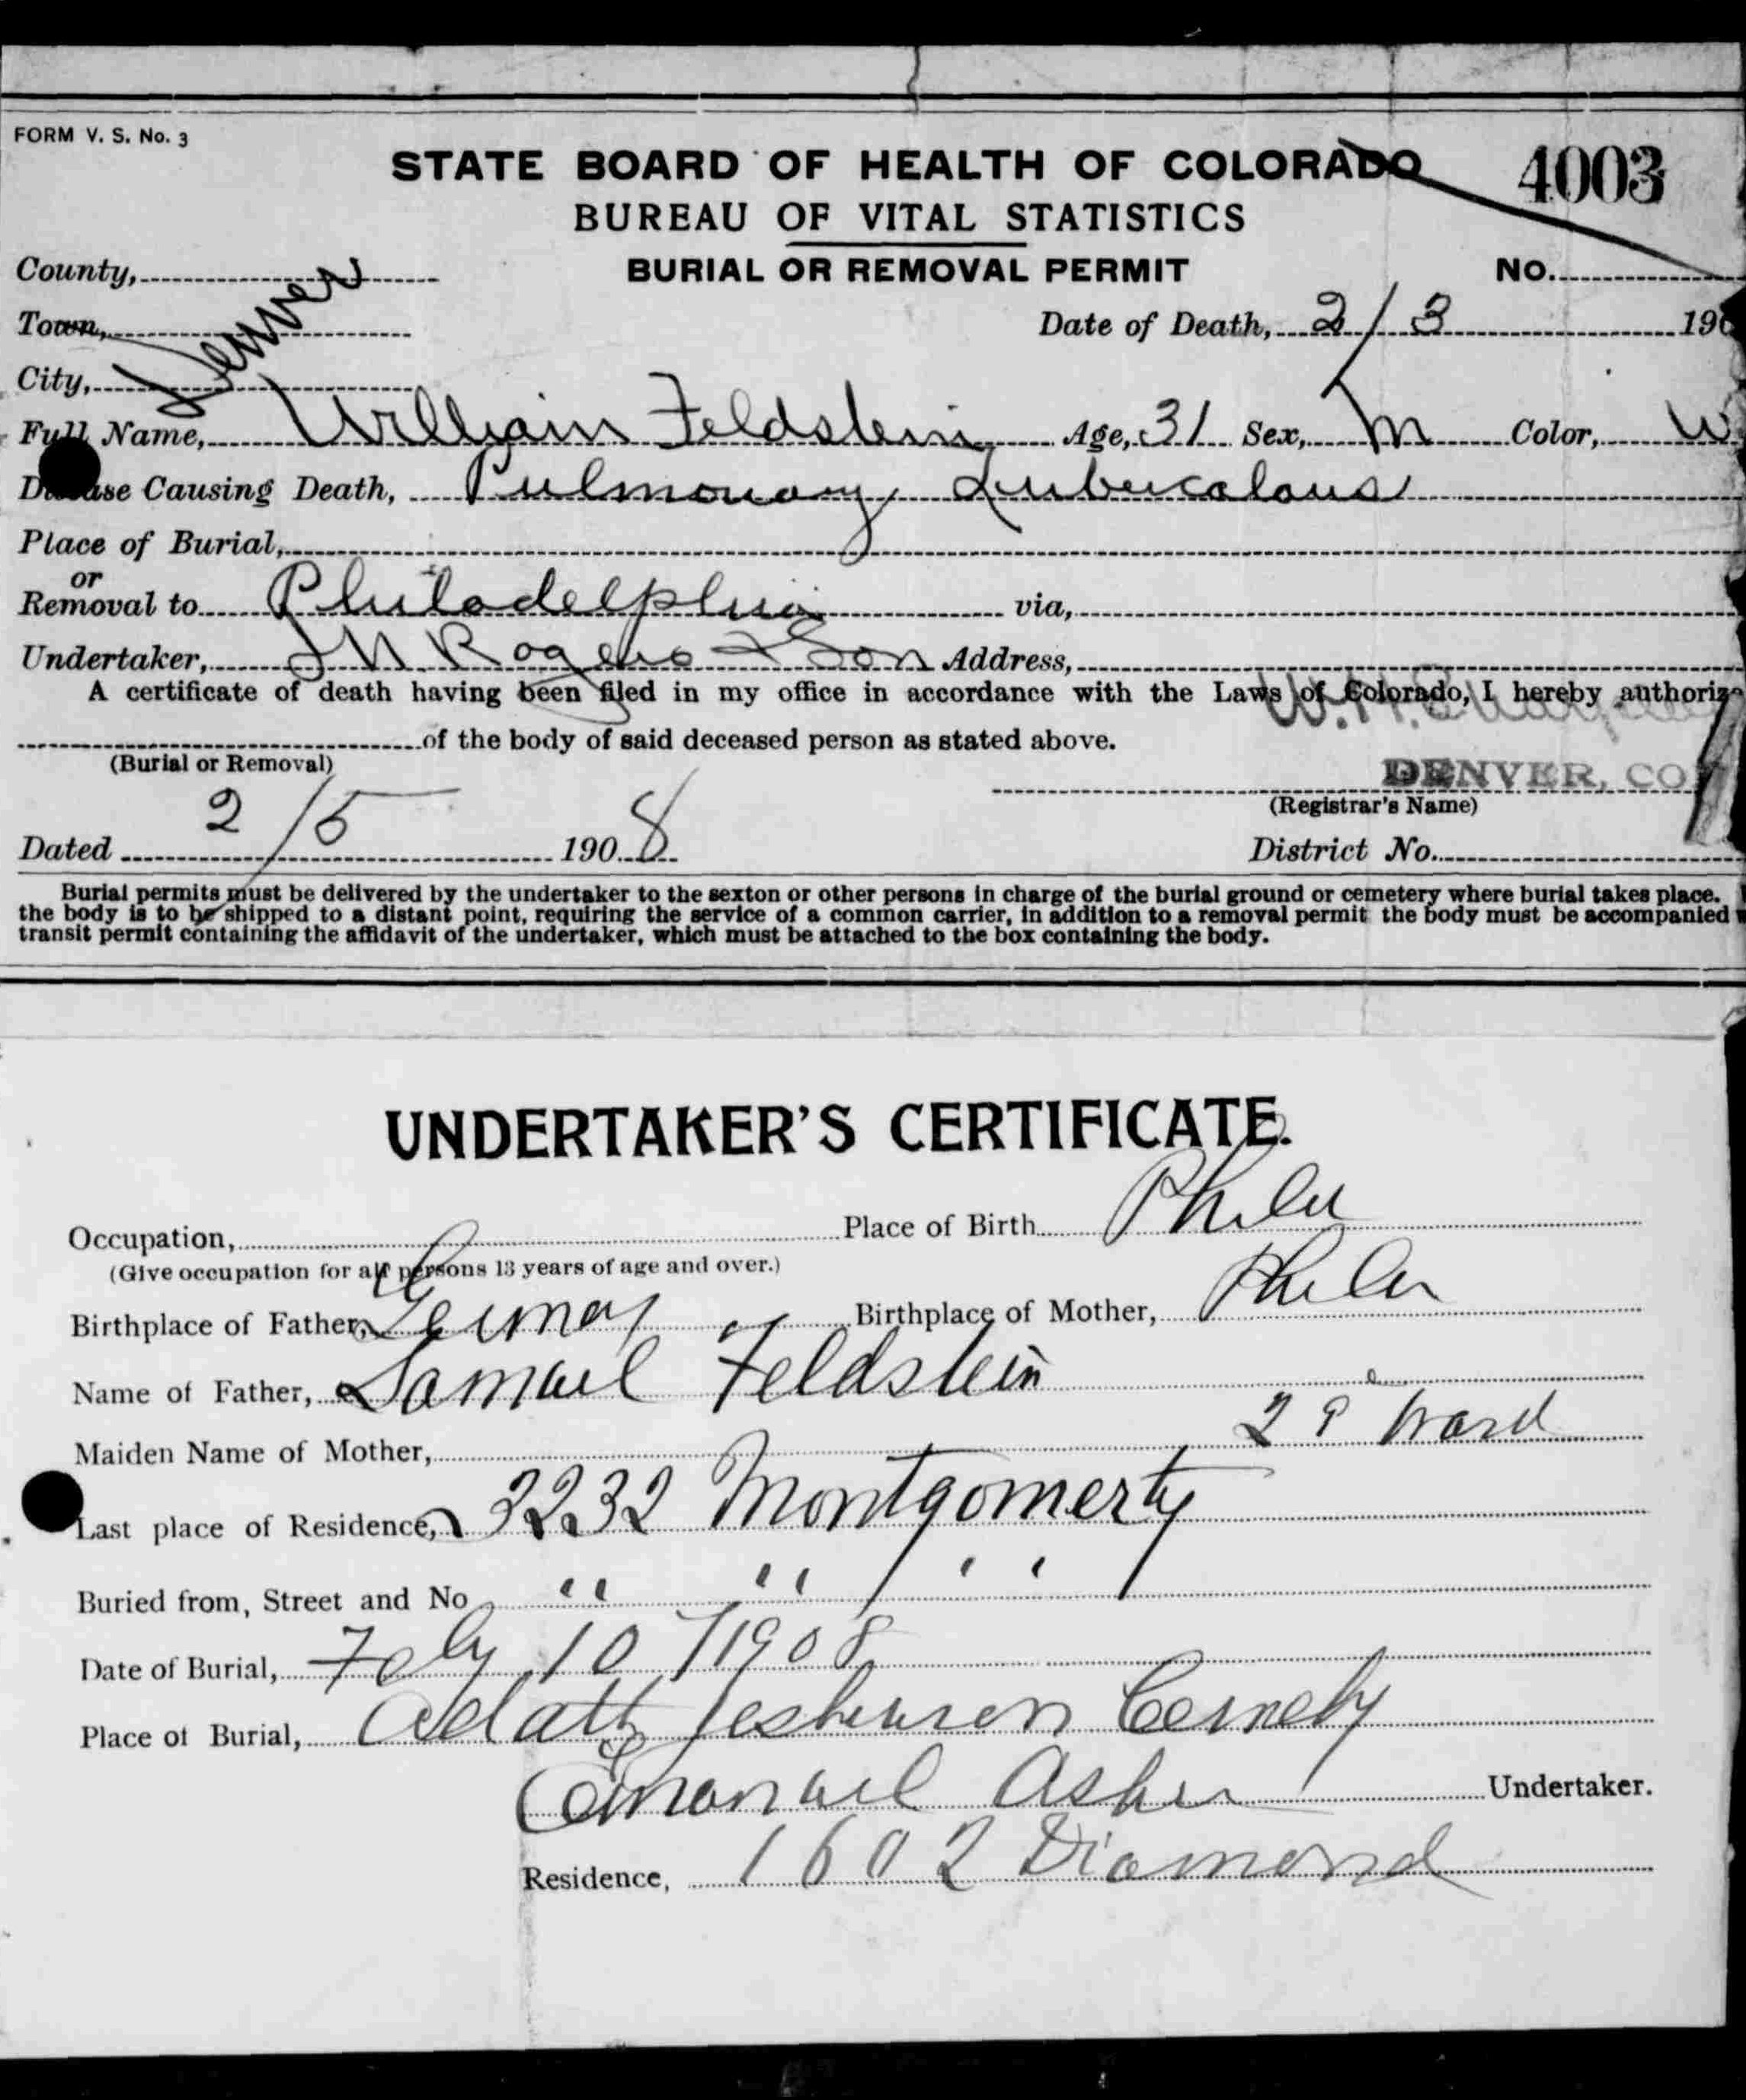 FORM V. S. No. 3
STATE BOARD OF HEALTH OF COLORADO 4003
BUREAU OF VITAL STATISTICS
BURIAL OR REMOVAL PERMIT No.
County,
Town, Date of Death, 2/3 190
City, Denver
Full Name, William Feldstein Age, 31 Sex, M Color, W
Disease Causing Death, Pulmonary
Place of Burial,
or
Removal to Philadelphia via,
Undertaker, Rogers & Son Address,
A certificate of death having been filed in my office in accordance with the Laws of Colorado, I hereby authorize
of the body of said deceased person as stated above.
(Burial or Removal)
DENVER, CO
(Registrar's Name)
Dated 2/5 1908 District No.
Burial permits must be delivered by the undertaker to the sexton or other persons in charge of the burial ground or cemetery where burial takes place.
the body is to be shipped to a distant point, requiring the service of a common carrier, in addition to a removal permit the body must be accompanied
transit permit containing the affidavit of the undertaker, which must be attached to the box containing the body.
UNDERTAKER'S CERTIFICATE.
Occupation, Place of Birth Phila
(Give occupation for all persons 13 years of age and over.)
Birthplace of Father, Germay Birthplace of Mother, Phila
Name of Father, Samuel Feldstein
Maiden Name of Mother, 29 Ward
Last place of Residence, 3232 Montgomery
Buried from, Street and No " " " "
Date of Burial, Feby 10/1908
Place of Burial, Adath Jeshuren
Emanuel Asher Undertaker.
Residence, 1602 Diamond